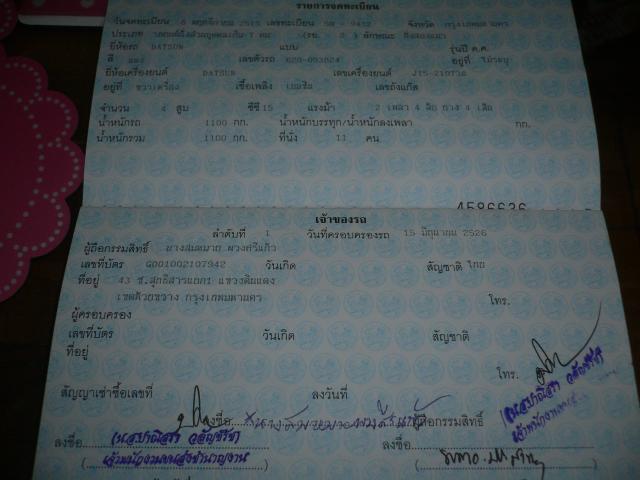 รายการจดทะเบียน
วันจดทะเบียน 8 พฤศจิกายน 2515 เลขทะเบียน 5ษ - 9412 จังหวัด กรุงเทพมหานคร
ประเภท รถยนต์นั่งส่วนบุคคลเกิน 7 คน (รย. 2) ลักษณะ นั่งสองแถว
ยี่ห้อรถ DATSUN แบบ รุ่นปี ค.ศ.
สี แดง เลขตัวรถ 620-093824 อยู่ที่ ไม่ระบุ
ยี่ห้อเครื่องยนต์ DATSUN เลขเครื่องยนต์ J15-210738
อยู่ที่ ขวาเครื่อง เชื้อเพลิง เบนซิน เลขถังแก๊ส
จำนวน 4 สูบ ซีซี 15 แรงม้า 2 เพลา 4 ล้อ ยาง 4 เส้น
น้ำหนักรถ 1100 กก. น้ำหนักบรรทุก/น้ำหนักลงเพลา กก.
น้ำหนักรวม 1100 กก. ที่นั่ง 11 คน
4586636
เจ้าของรถ
ลำดับที่ 1 วันที่ครอบครองรถ 15 มิถุนายน 2526
ผู้ถือกรรมสิทธิ์ นางสมหมาย พวงศรีแก้ว
เลขที่บัตร G001002107942 วันเกิด สัญชาติ ไทย
ที่อยู่ 43 ซ.สุทธิสารแยก1 แขวงดินแดง
เขตห้วยขวาง กรุงเทพมหานคร โทร.
ผู้ครอบครอง
เลขที่บัตร วันเกิด สัญชาติ
ที่อยู่
โทร.
สัญญาเช่าซื้อเลขที่ ลงวันที่
ลงชื่อ ผู้ถือกรรมสิทธิ์
ลงชื่อ ลงชื่อ
เจ้าพนักงานขนส่งชำนาญงาน